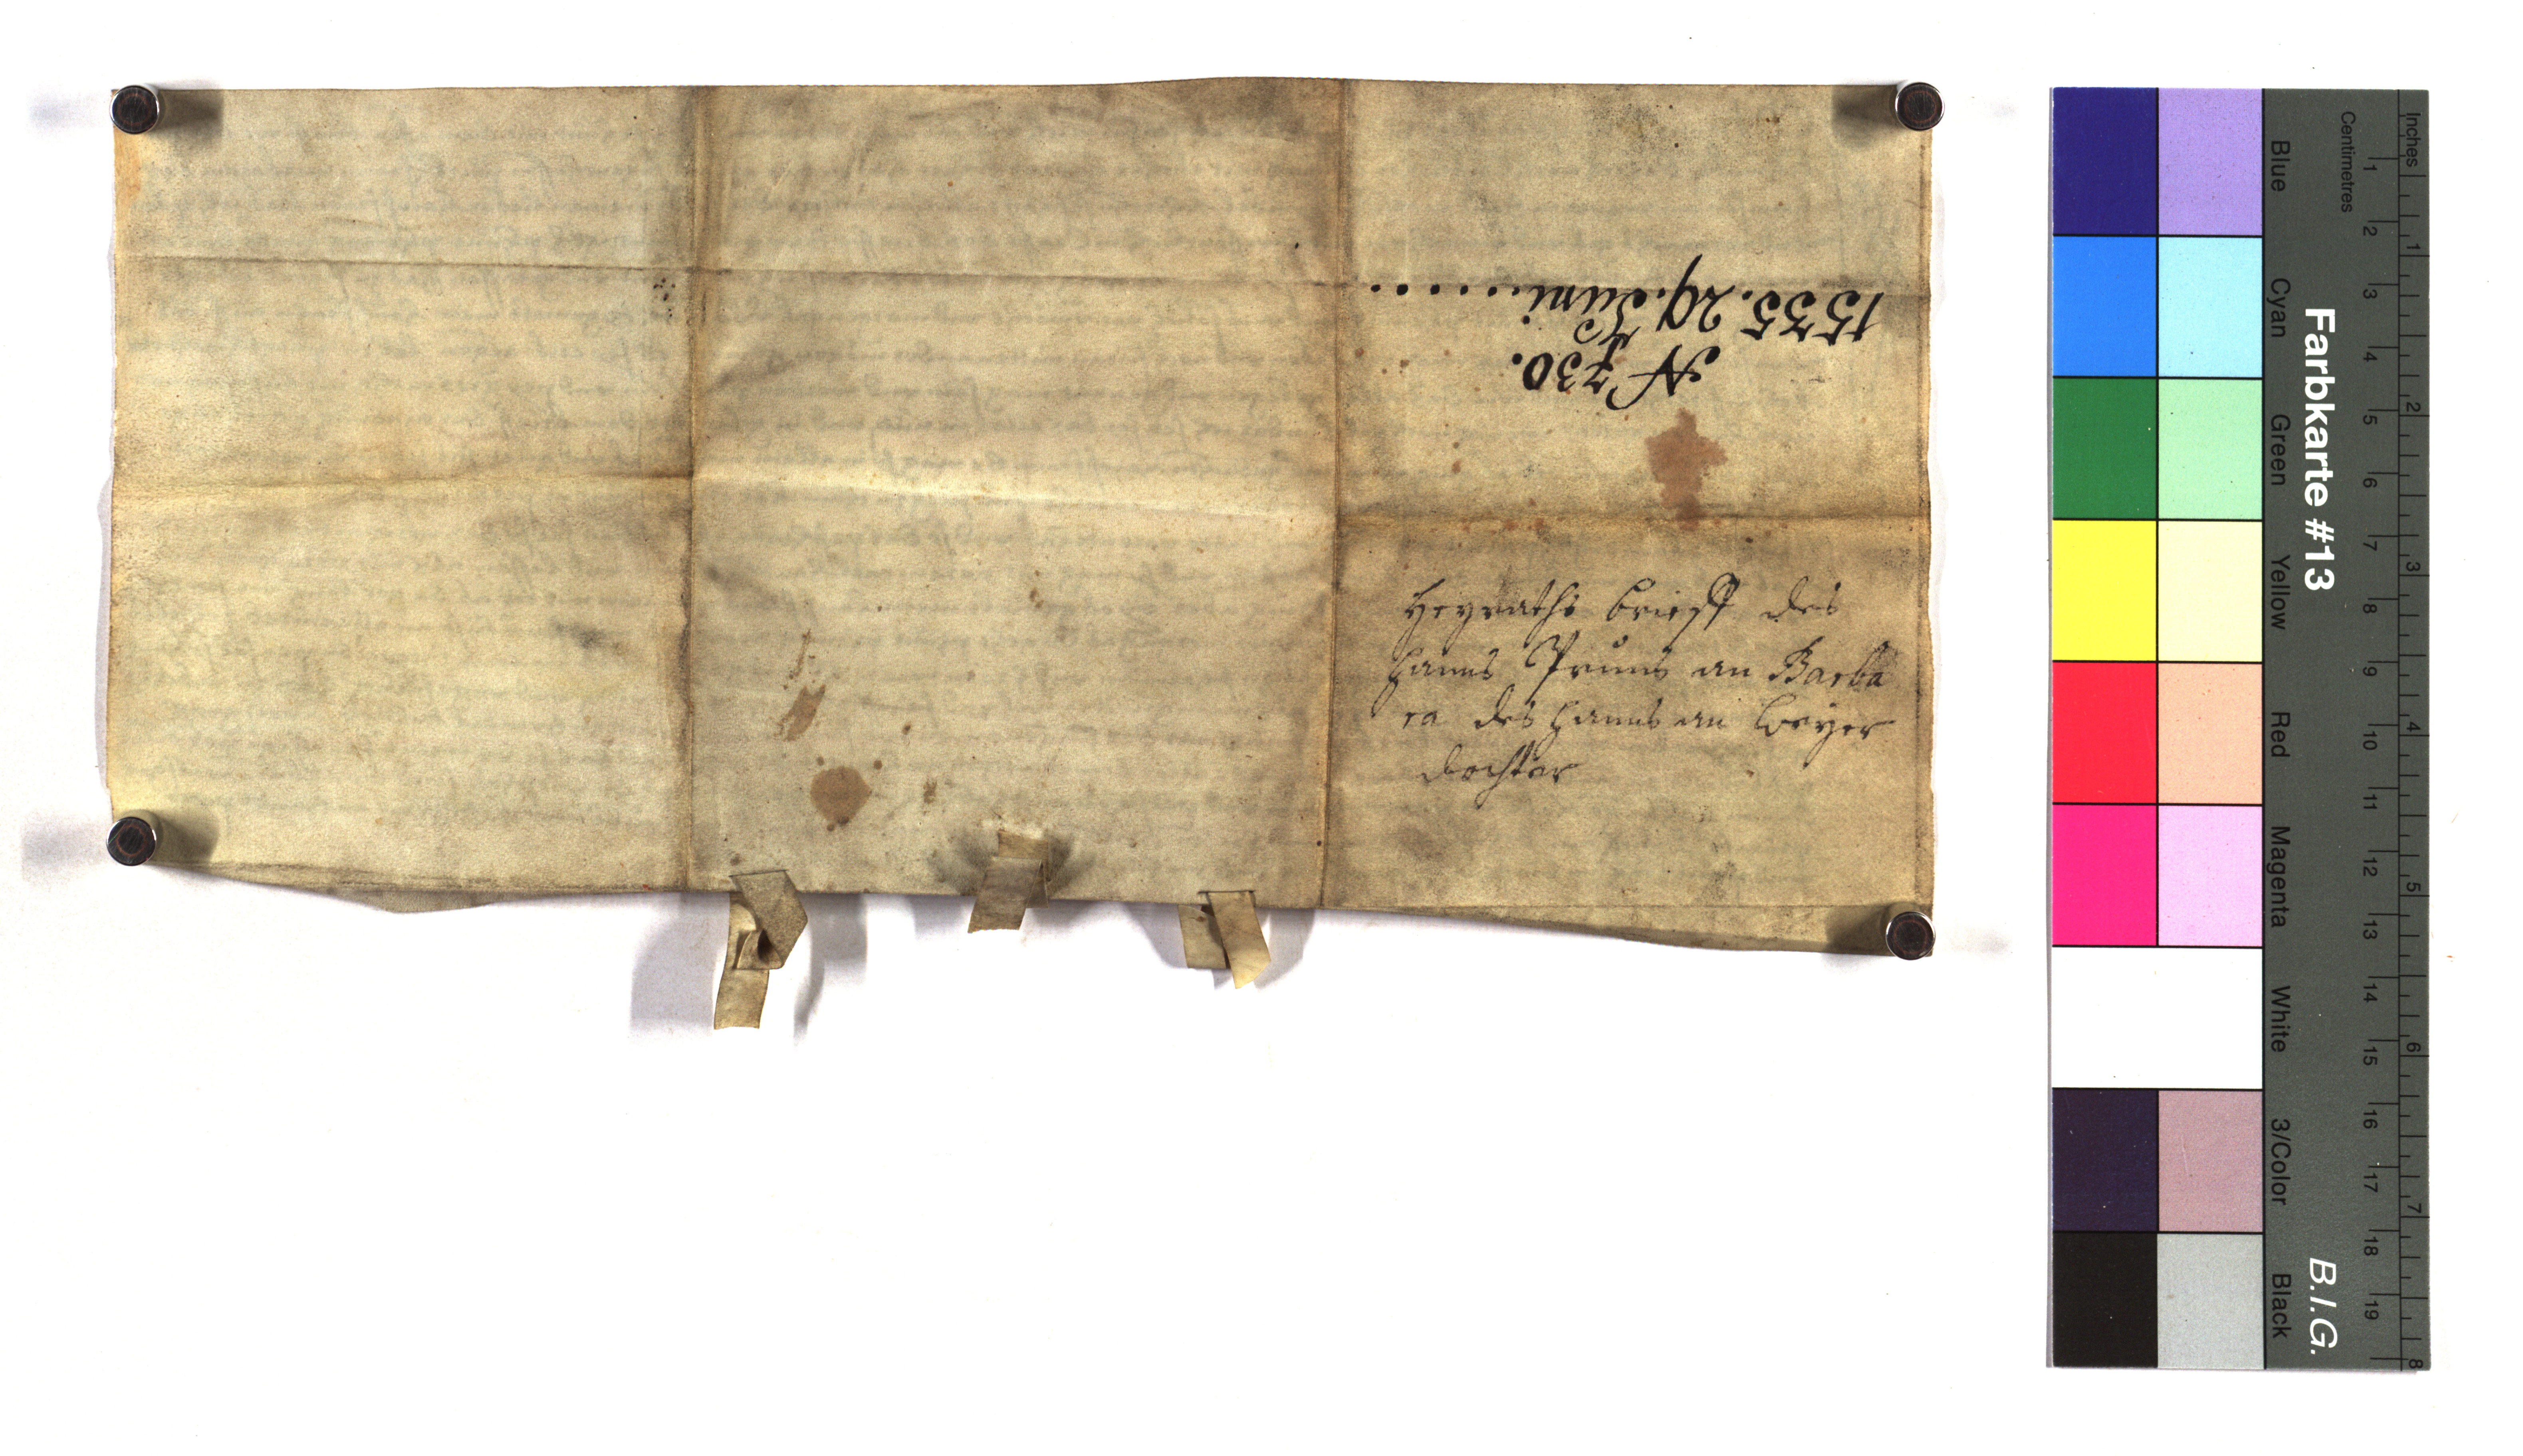 1535. 29. Juni........
N 730.
Heyraths brieff des
hanns Prunns an Barba
ra des hanns an weyer
dochter
Farbkarte #13
B.I.G.
Inches
Centimetres
1 2 3 4 5 6 7 8 9 10 11 12 13 14 15 16 17 18 19
1 2 3 4 5 6 7 8
Blue
Cyan
Green
Yellow
Red
Magenta
White
3/Color
Black